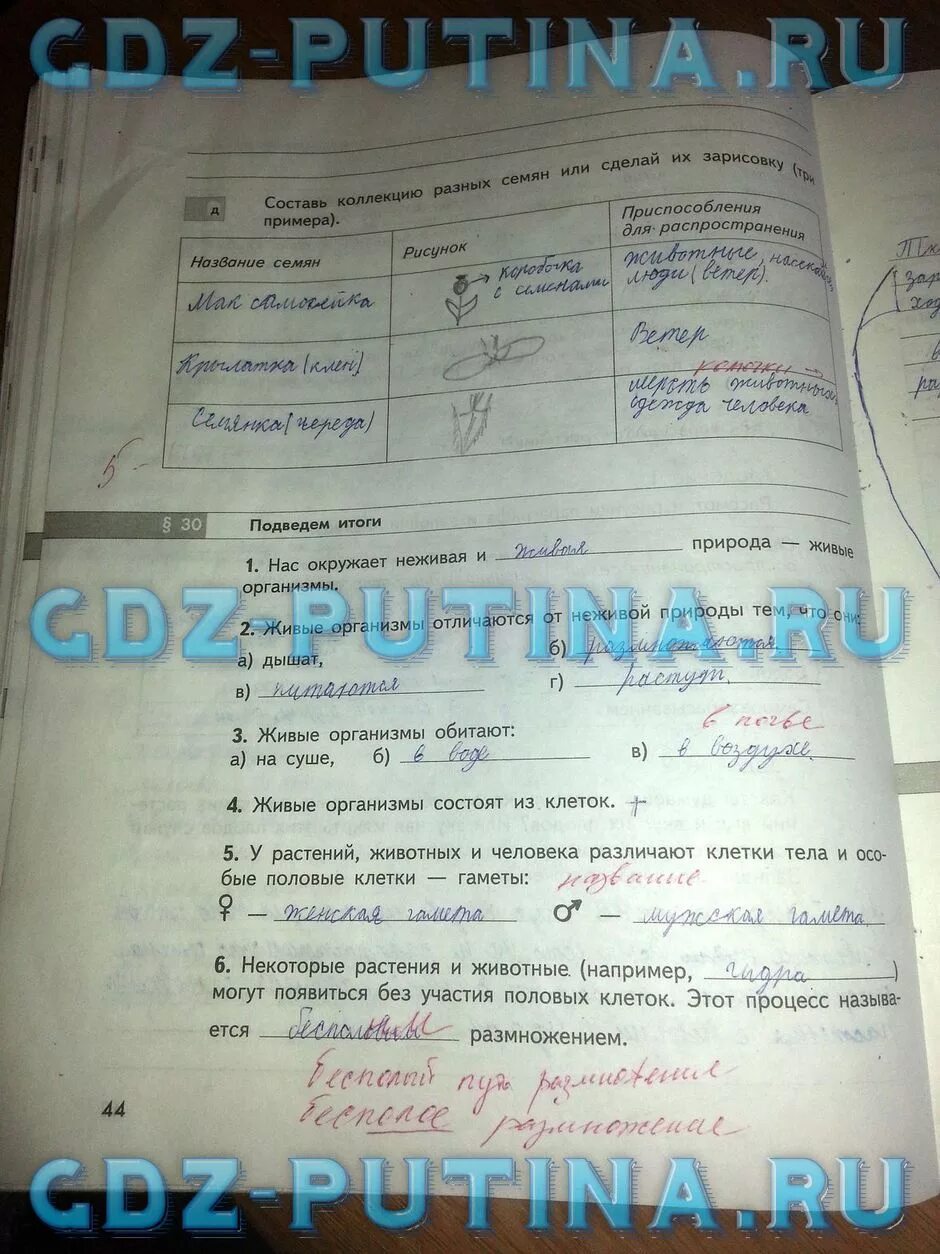 GDZ-PUTINA.RU
д
Составь коллекцию разных семян или сделай их зарисовку (три
примера).
Название семян
Рисунок
Приспособления
для распространения
Мак самосейка
коробочка
с семенами
животные, насекомые
люди (ветер).
Крылатка (клен)
Ветер
колючки →
Семянка (череда)
шерсть животных
одежда человека
5
§ 30
Подведем итоги
1. Нас окружает неживая и живая природа — живые
организмы.
GDZ-PUTINA.RU
2. Живые организмы отличаются от неживой природы тем, что они:
а) дышат, б) размножаются
в) питаются г) растут.
в почве
3. Живые организмы обитают:
а) на суше, б) в воде в) в воздухе.
4. Живые организмы состоят из клеток. +
5. У растений, животных и человека различают клетки тела и осо-
бые половые клетки — гаметы: название
♀ — женская гамета ♂ — мужская гамета
6. Некоторые растения и животные (например, гидра)
могут появиться без участия половых клеток. Этот процесс называ-
ется бесполым размножением.
Бесполый путь размножения
Бесполое размножение
44
GDZ-PUTINA.RU